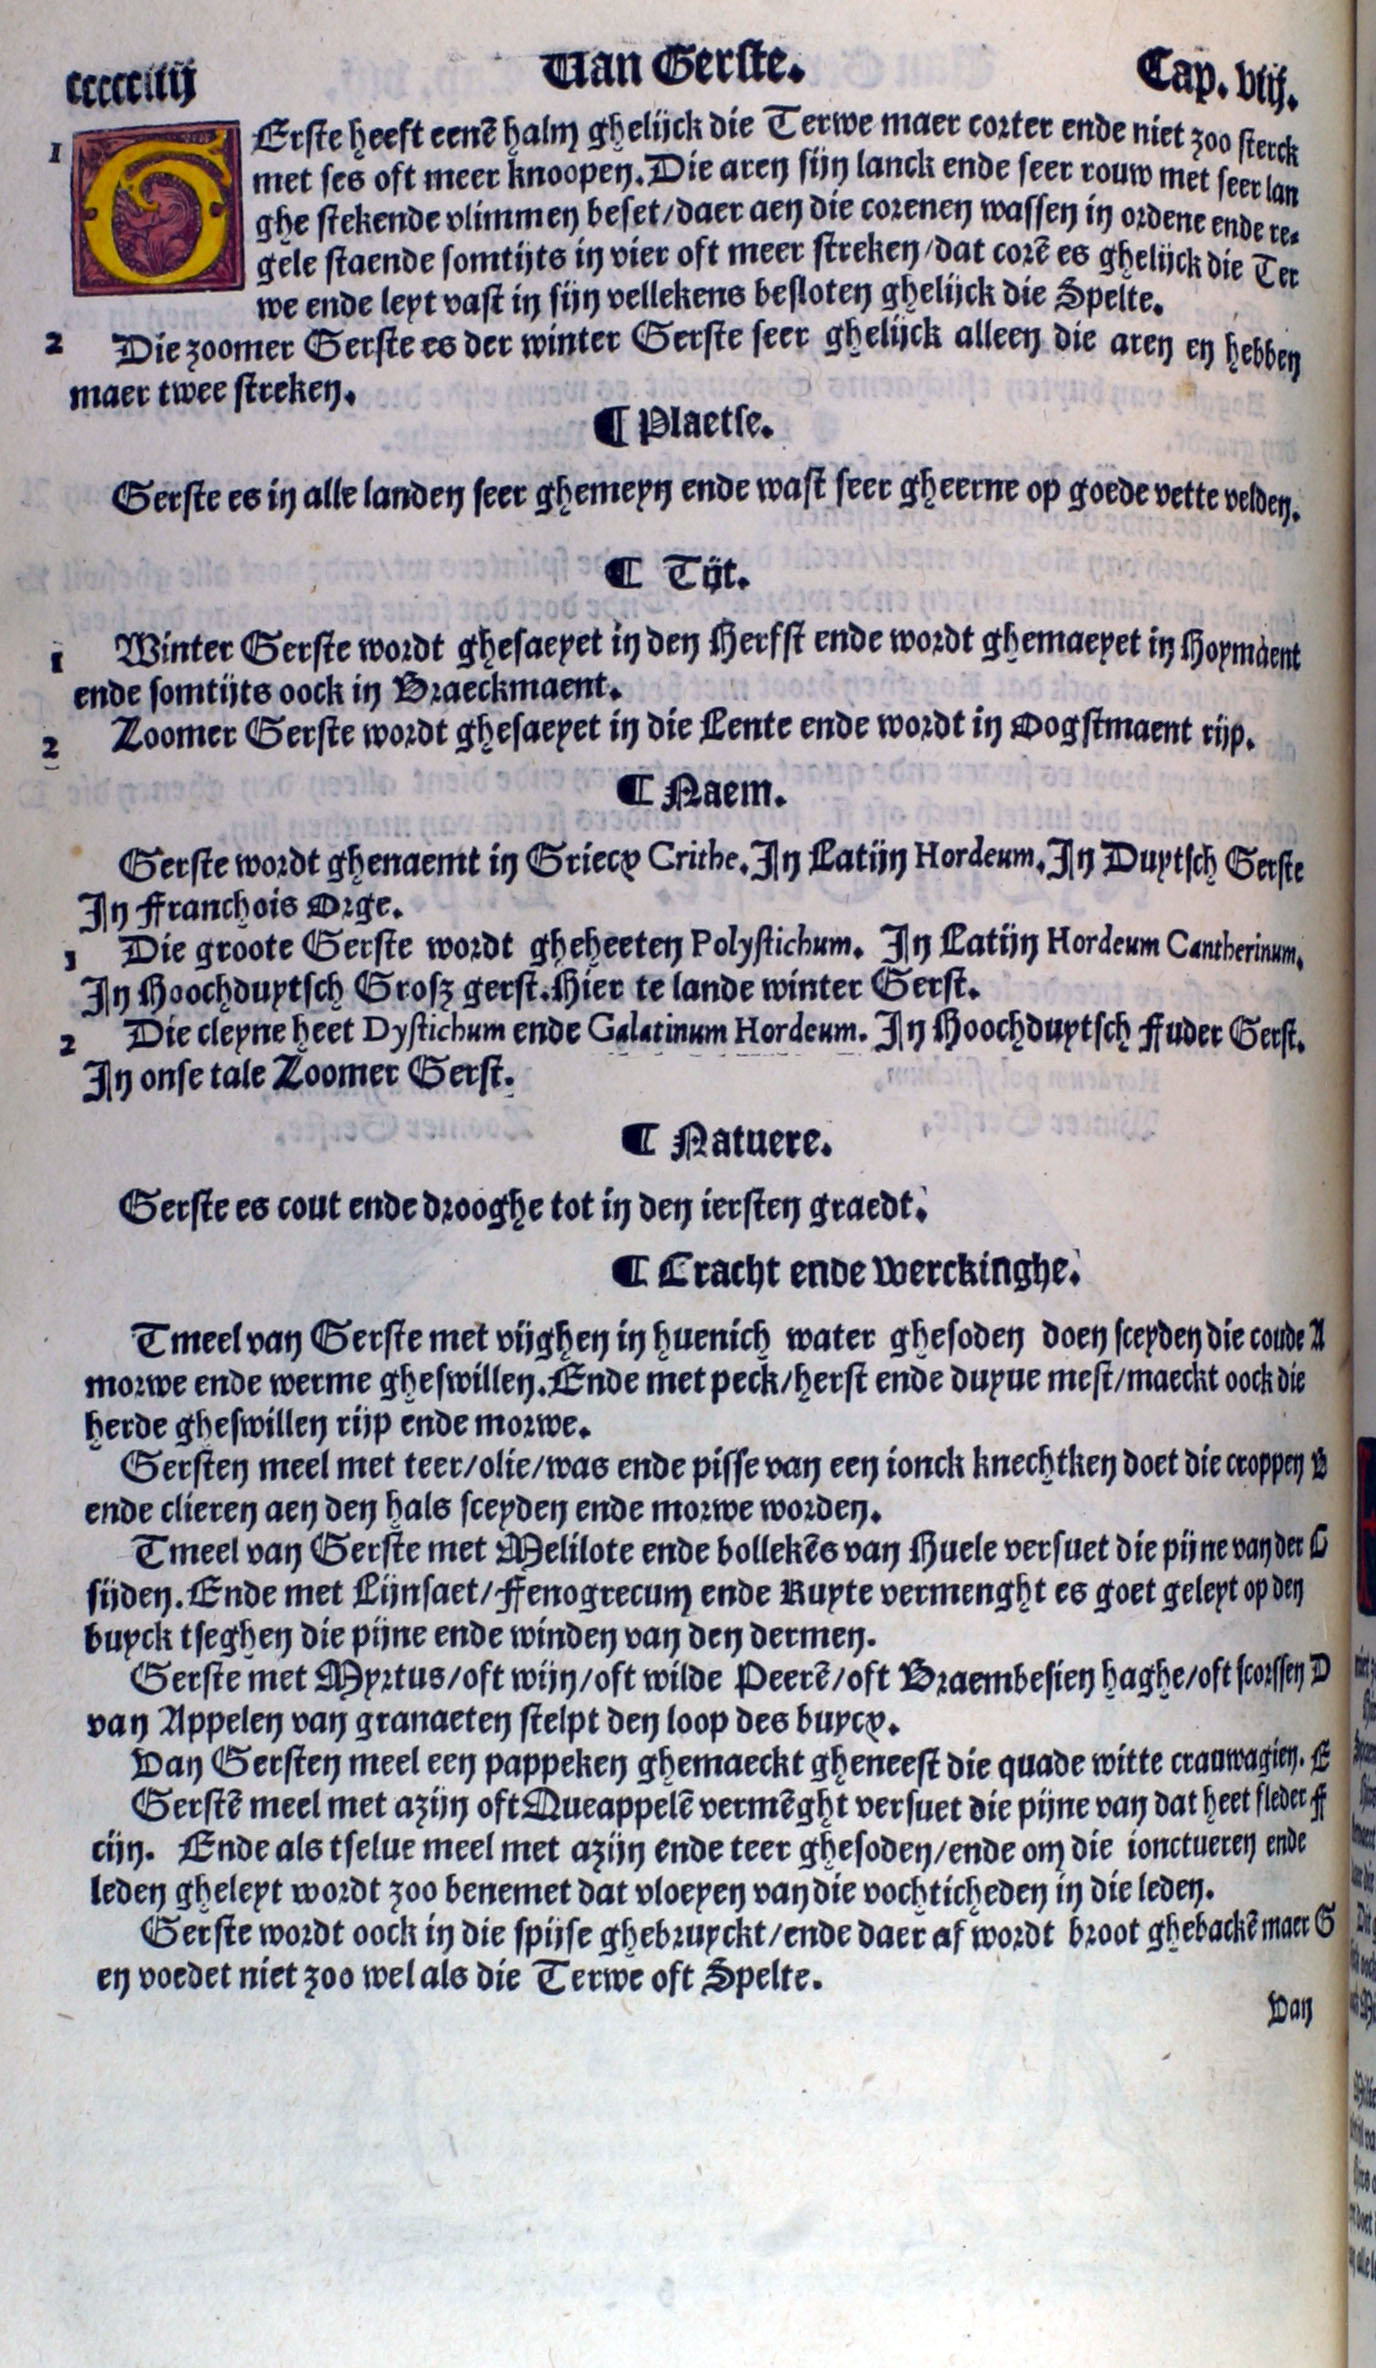 ccccciiij Van Gerste. Cap. viij.
1 GErste heeft eenē halm ghelijck die Terwe maer corter ende niet zoo sterck
met ses oft meer knoopen. Die aren sijn lanck ende seer rouw met seer lan
ghe stekende vlimmen beset/daer aen die corenen wassen in ordene ende re-
gele staende somtijts in vier oft meer streken/dat corē es ghelijck die Ter
we ende leyt vast in sijn vellekens besloten ghelijck die Spelte.
2 Die zoomer Gerste es der winter Gerste seer ghelijck alleen die aren en hebben
maer twee streken.
¶ Plaetse.
Gerste es in alle landen seer ghemeyn ende wast seer gheerne op goede vette velden.
¶ Tijt.
1 Winter Gerste wordt ghesaeyet in den Herfst ende wordt ghemaeyet in Hoymaent
ende somtijts oock in Braeckmaent.
2 Zoomer Gerste wordt ghesaeyet in die Lente ende wordt in Oogstmaent rijp.
¶ Naem.
Gerste wordt ghenaemt in Griecx Crithe. In Latijn Hordeum. In Duytsch Gerste
In Franchois Orge.
1 Die groote Gerste wordt gheheeten Polystichum. In Latijn Hordeum Cantherinum.
In Hoochduytsch Grosz gerst. Hier te lande winter Gerst.
2 Die cleyne heet Dystichum ende Galatinum Hordeum. In Hoochduytsch Fuder Gerst.
In onse tale Zoomer Gerst.
¶ Natuere.
Gerste es cout ende drooghe tot in den iersten graedt.
¶ Cracht ende werckinghe.
Tmeel van Gerste met vijghen in huenich water ghesoden doen sceyden die coude A
morwe ende werme gheswillen. Ende met peck/herst ende duyue mest/maeckt oock die
herde gheswillen rijp ende morwe.
Gersten meel met teer/olie/was ende pisse van een ionck knechtken doet die croppen B
ende clieren aen den hals sceyden ende morwe worden.
Tmeel van Gerste met Melilote ende bollekēs van Huele versuet die pijne van der C
sijden. Ende met Lijnsaet/Fenogrecum ende Ruyte vermenght es goet geleyt op den
buyck tseghen die pijne ende winden van den dermen.
Gerste met Myrtus/oft wijn/oft wilde Peerē/oft Braembesien haghe/oft scorssen D
van Appelen van granaeten stelpt den loop des buycx.
Van Gersten meel een pappeken ghemaeckt gheneest die quade witte crauwagien. E
Gerstē meel met azijn oft Queappelē vermēght versuet die pijne van dat heet fleder F
cijn. Ende als tselue meel met azijn ende teer ghesoden/ende om die ionctueren ende
leden gheleyt wordt zoo benemet dat vloeyen van die vochticheden in die leden.
Gerste wordt oock in die spijse ghebruyckt/ende daer af wordt broot ghebackē maer G
en voedet niet zoo wel als die Terwe oft Spelte.
Van